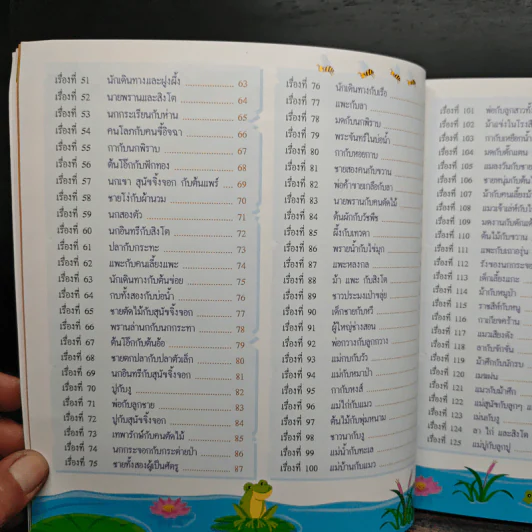 เรื่องที่ 51 นักเดินทางและฝูงผึ้ง 63
เรื่องที่ 52 นายพรานและสิงโต 64
เรื่องที่ 53 นกกระเรียนกับห่าน 65
เรื่องที่ 54 คนโลภกับคนขี้อิจฉา 66
เรื่องที่ 55 กากับนกพิราบ 67
เรื่องที่ 56 ต้นโอ๊กกับฟักทอง 68
เรื่องที่ 57 นกเขา สุนัขจิ้งจอก กับต้นแพร์ 69
เรื่องที่ 58 ชายโง่กับผ้านวม 70
เรื่องที่ 59 นกสองตัว 71
เรื่องที่ 60 นกอินทรีกับสิงโต 72
เรื่องที่ 61 ปลากับกระทะ 73
เรื่องที่ 62 แพะกับคนเลี้ยงแพะ 74
เรื่องที่ 63 นักเดินทางกับต้นข่อย 75
เรื่องที่ 64 กบทั้งสองกับบ่อน้ำ 76
เรื่องที่ 65 ชายตัดไม้กับสุนัขจิ้งจอก 77
เรื่องที่ 66 พรานล่านกกับนกกระทา 78
เรื่องที่ 67 ต้นโอ๊กกับต้นอ้อ 79
เรื่องที่ 68 ชายตกปลากับปลาตัวเล็ก 80
เรื่องที่ 69 นกอินทรีกับสุนัขจิ้งจอก 81
เรื่องที่ 70 ปูกับงู 82
เรื่องที่ 71 พ่อกับลูกชาย 83
เรื่องที่ 72 ปูกับสุนัขจิ้งจอก 84
เรื่องที่ 73 เทพารักษ์กับคนตัดไม้ 85
เรื่องที่ 74 นกกระจอกกับกระต่ายป่า 86
เรื่องที่ 75 ชายทั้งสองผู้เป็นศัตรู 87
เรื่องที่ 76 นักเดินทางกับเรือ
เรื่องที่ 77 แพะกับลา
เรื่องที่ 78 มดกับนกพิราบ
เรื่องที่ 79 พระจันทร์ในบ่อน้ำ
เรื่องที่ 80 กากับหอยกาบ
เรื่องที่ 81 ชายสองคนกับขวาน
เรื่องที่ 82 พ่อค้าขายเกลือกับลา
เรื่องที่ 83 นายพรานกับคนตัดไม้
เรื่องที่ 84 ต้นผักกับวัชพืช
เรื่องที่ 85 ผึ้งกับเทวดา
เรื่องที่ 86 พรายน้ำกับไข่มุก
เรื่องที่ 87 แพะหลงกล
เรื่องที่ 88 ม้า แพะ กับสิงโต
เรื่องที่ 89 ชาวประมงเป่าขลุ่ย
เรื่องที่ 90 เด็กชายกับหวี
เรื่องที่ 91 ผู้ใหญ่ช่างสอน
เรื่องที่ 92 พ่อกวางกับลูกกวาง
เรื่องที่ 93 แม่กบกับวัว
เรื่องที่ 94 แม่กับหมาป่า
เรื่องที่ 95 กากับหงส์
เรื่องที่ 96 แม่ไก่กับแมว
เรื่องที่ 97 ต้นไม้กับพุ่มหนาม
เรื่องที่ 98 ชาวนากับงู
เรื่องที่ 99 แม่น้ำกับทะเล
เรื่องที่ 100 แม่บ้านกับแมว
เรื่องที่ 101 พ่อกับลูกสาวทั้ง
เรื่องที่ 102
เรื่องที่ 103 กากับเหยือกน้ำ
เรื่องที่ 104 มดกับตั๊กแตน
เรื่องที่ 105
เรื่องที่ 106 ชายหนุ่มกับต้น
เรื่องที่ 107 ม้ากับคนเลี้ยงม้า
เรื่องที่ 108
เรื่องที่ 109
เรื่องที่ 110 ต้นไม้กับขวาน
เรื่องที่ 111 แพะกับเถาองุ่น
เรื่องที่ 112 รังของนกกระจอก
เรื่องที่ 113 เด็กเลี้ยงแกะ
เรื่องที่ 114 ม้ากับหมูป่า
เรื่องที่ 115 ราชสีห์กับหนู
เรื่องที่ 116
เรื่องที่ 117
เรื่องที่ 118 ลากับจักจั่น
เรื่องที่ 119 ม้าศึกกับนักรบ
เรื่องที่ 120
เรื่องที่ 121 แมวกับม้าศึก
เรื่องที่ 122 แม่สุนัขกับลูกๆ
เรื่องที่ 123 เม่นกับงู
เรื่องที่ 124 ลา ไก่ และสิงโต
เรื่องที่ 125 แม่ปูกับลูกปู